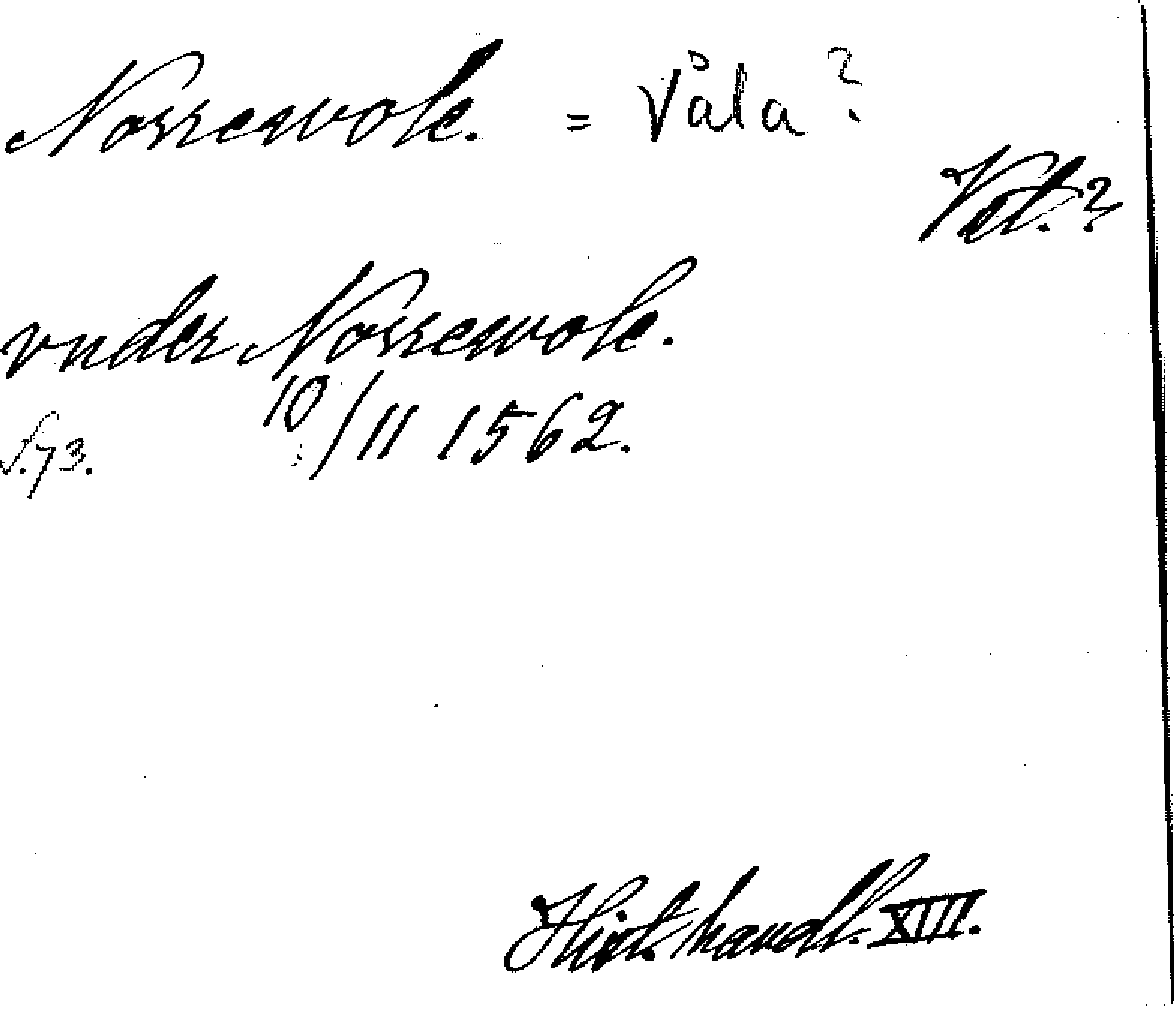 Norrewole. = Våla?
Vel.?
vnder Norrewole.
S. 73. 10/11 1562.
Hist. handl. XIII.